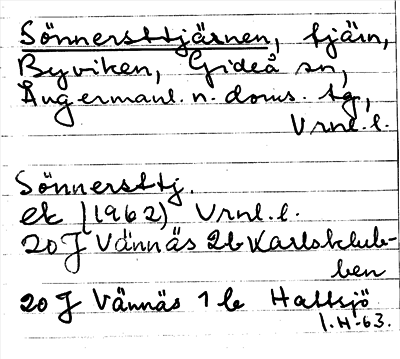 Sönnersttjärnen, tjärn,
Byviken, Gideå sn,
Ångermanl. n. doms. tg,
Vrnl. l.
Sönnersttj.
ek (1962) Vrnl. l.
20 J Vännäs 2b Karlsklub-
ben
20 J Vännäs 1b Hattsjö
I.H-63.